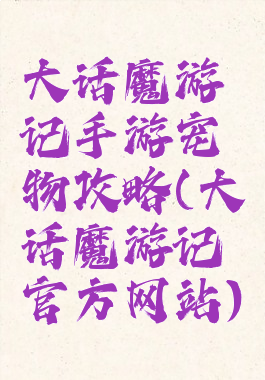 大话魔游
记手游宠
物攻略(大
话魔游记
官方网站)